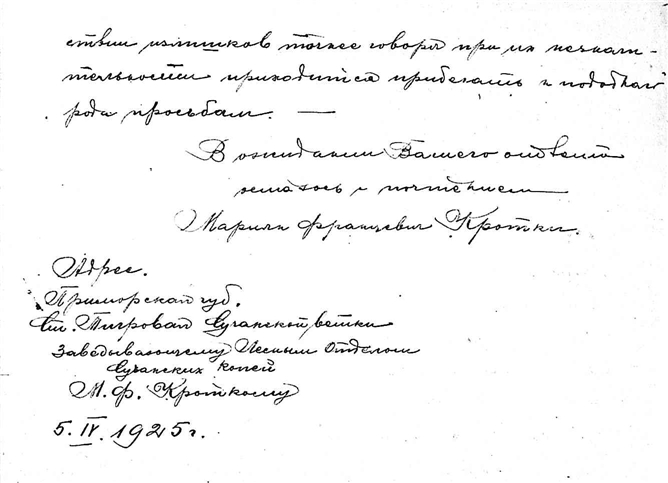 ствии излишков точнее говоря при их незначи-
тельности приходится прибегать к подобного
рода просьбам. —
В ожидании Вашего ответа
остаюсь с почтением
Мариан Францевич Кротки.
Адрес.
Приморская губ.
Ст. Тигровая Сучанской ветки
Заведывающему Лесным Отделом
Сучанских копей
М. Ф. Кроткому
5. IV. 1925 г.